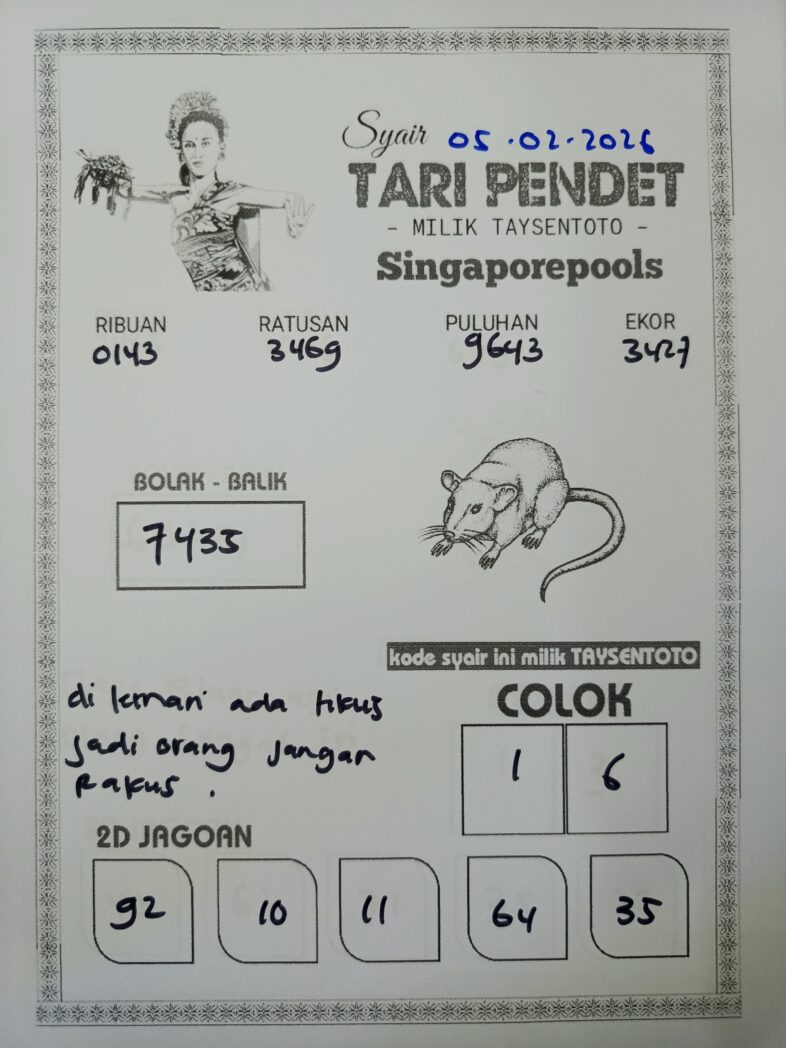 Syair 05.02.2026
TARI PENDET
- MILIK TAYSENTOTO -
Singaporepools
RIBUAN RATUSAN PULUHAN EKOR
0143 3469 9643 3427
BOLAK - BALIK
7435
kode syair ini milik TAYSENTOTO
di lemari ada tikus
jadi orang jangan
Rakus .
COLOK
1 6
2D JAGOAN
92 10 11 64 35